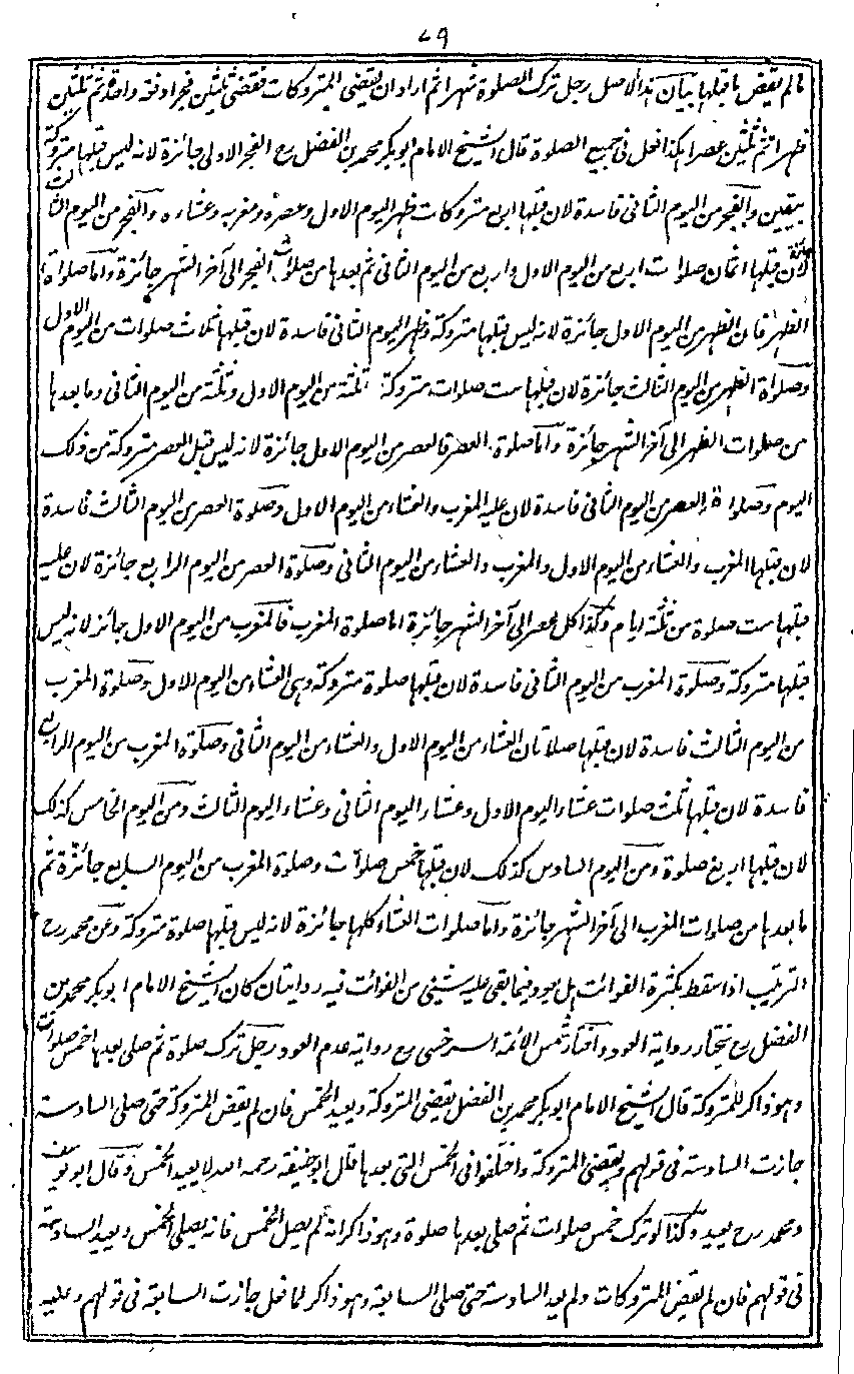 ٦٩
مالم يقض ماقبلها بيان هذا الاصل رجل ترك الصلوة شهرا ثم اراد ان يقضى المتروكات فقضى ثلثين فجرا دفعة واحدة ثم ثلثين
ظهرا ثم ثلثين عصرا هكذا فعل فى جميع الصلوة قال الشيخ الامام ابو بكر محمد بن الفضل رح الفجر الاولى جائزة لانه ليس قبلها متروكة
بيقين والفجر من اليوم الثانى فاسدة لان قبلها اربع متروكات ظهر اليوم الاول وعصره ومغربه وعشاءه والفجر من اليوم الثالث
جائزة لان قبلها ثمان صلوات اربع من اليوم الاول واربع من اليوم الثانى ثم بعدها من صلوات الفجر الى آخر الشهر جائزة واما صلواة
الظهر فان الظهر من اليوم الاول جائزة لانه ليس قبلها متروكة وظهر اليوم الثانى فاسدة لان قبلها ثلاث صلوات من اليوم الاول
وصلواة الظهر من اليوم الثالث جائزة لان قبلها ست صلوات متروكة ثلثة من اليوم الاول وثلثة من اليوم الثانى وما بعدها
من صلوات الظهر الى آخر الشهر جائزة واما صلوة العصر فالعصر من اليوم الاول جائزة لانه ليس قبل العصر متروكة من ذلك
اليوم وصلواة العصر من اليوم الثانى فاسدة لان عليه المغرب والعشاء من اليوم الاول وصلوة العصر من اليوم الثالث فاسدة
لان قبلها المغرب والعشاء من اليوم الاول والمغرب والعشاء من اليوم الثانى وصلوة العصر من اليوم الرابع جائزة لان عليه
قبلها ست صلوة من ثلثة ايام وكذا كل عصر الى آخر الشهر جائزة اما صلوة المغرب فالمغرب من اليوم الاول جائز لانه ليس
قبلها متروكة وصلوة المغرب من اليوم الثانى فاسدة لان قبلها صلوة متروكة وهى العشاء من اليوم الاول وصلوة المغرب
من اليوم الثالث فاسدة لان قبلها صلاتان العشاء من اليوم الاول والعشاء من اليوم الثانى وصلوة المغرب من اليوم الرابع
فاسدة لان قبلها ثلث صلوات عشاء اليوم الاول وعشاء اليوم الثانى وعشاء اليوم الثالث ومن اليوم الخامس كذلك
لان قبلها اربع صلوة ومن اليوم السادس كذلك لان قبلها خمس صلوات وصلوة المغرب من اليوم السابع جائزة ثم
ما بعدها من صلوات المغرب الى آخر الشهر جائزة واما صلوات العشاء كلها جائزة لانه ليس قبلها صلوة متروكة وعن محمد رح
الترتيب اذا سقط بكثرة الفوائت هل يعود فيما بقى عليه شيئ من الفوائت فيه روايتان كان الشيخ الامام ابو بكر محمد بن
الفضل رح يختار رواية العود واختار شمس الائمة السرخسى رح رواية عدم العود رجل ترك صلوة ثم صلى بعدها خمس صلوات
وهو ذاكر للمتروكة قال الشيخ الامام ابو بكر محمد بن الفضل يقضى المتروكة ويعيد الخمس فان لم يقض المتروكة حتى صلى السادسة
جازت السادسة فى قولهم ويقضى المتروكة واختلفوا فى الخمس التى بعدها قال ابو حنيفة رحمه الله لا يعيد الخمس وقال ابو يوسف
ومحمد رح يعيد وكذا لو ترك خمس صلوات ثم صلى بعدها صلوة وهو ذاكر انه لم يصل الخمس فانه يصلى الخمس ويعيد السادسة
فى قولهم فان لم يقض المتروكات ولم يعد السادسة حتى صلى السابعة وهو ذاكر لما فعل جازت السابعة فى قولهم وعليه